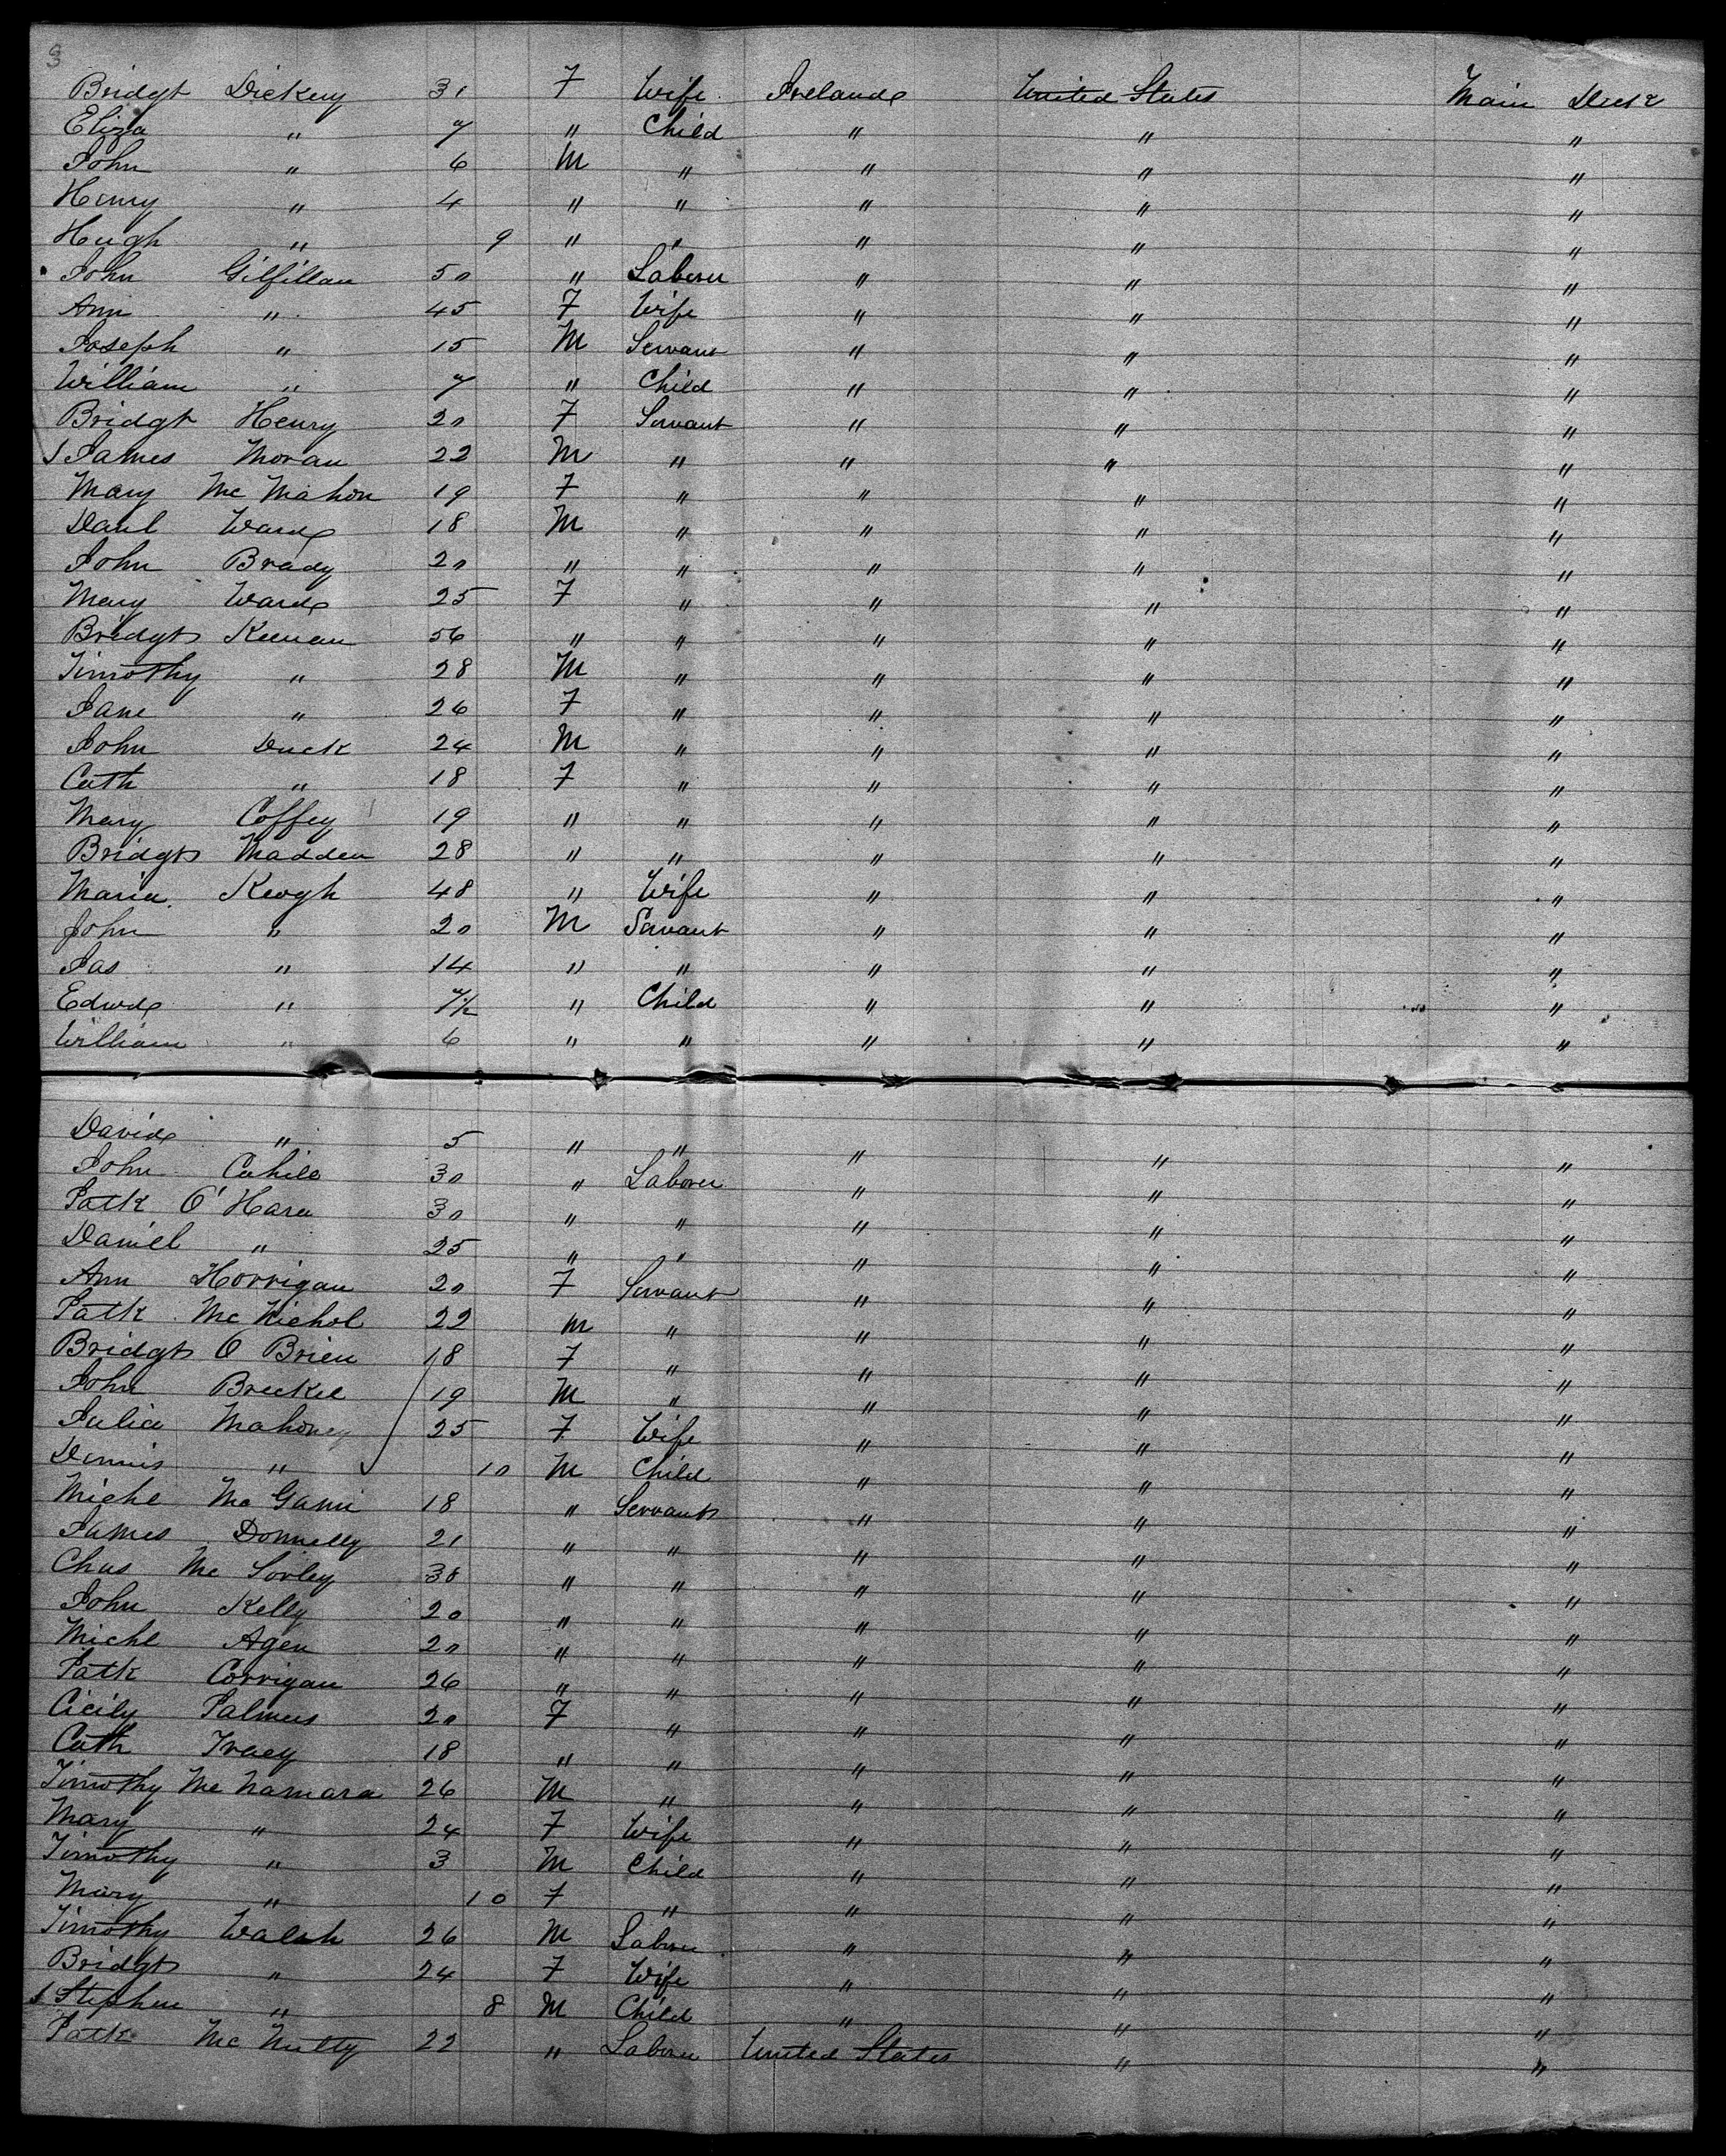 3
Bridgt Dickey 31 F Wife Ireland United States Main Deck
Eliza " 7 " Child " " "
John " 6 M " " " "
Henry " 4 " " " " "
Hugh " 9 " " " " "
John Gilfillan 50 " Laborer " " "
Ann " 45 F Wife " " "
Joseph " 15 M Servant " " "
William " 7 " Child " " "
Bridgt Henry 20 F Servant " " "
James Moran 22 M " " " "
Mary McMahon 19 F " " " "
Danl Ward 18 M " " " "
John Brady 20 " " " " "
Mary Ward 25 F " " " "
Bridgt Keenan 56 " " " " "
Timothy " 28 M " " " "
Jane " 26 F " " " "
John Duck 24 M " " " "
Cath " 18 F " " " "
Mary Coffey 19 " " " " "
Bridgt Madden 28 " " " " "
Maria Keogh 48 " Wife " " "
John " 20 M Servant " " "
Jas " 14 " " " " "
Edwd " 7½ " Child " " "
William " 6 " " " " "
David " 5 " " " " "
John Cahill 30 " Laborer " " "
Patk O'Hara 30 " " " " "
Daniel " 25 " " " " "
Ann Horrigan 20 F Servant " " "
Patk McNichol 22 M " " " "
Bridgt O Brien 18 F " " " "
John 19 M " " " "
Julia Mahoney 25 F Wife " " "
Dennis " 10 M Child " " "
Michl 18 " Servant " " "
James Donnelly 21 " " " " "
Chas McSorley 30 " " " " "
John Kelly 20 " " " " "
Michl Agen 20 " " " " "
Patk Corrigan 26 " " " " "
Cicily Palmer 20 F " " " "
Cath Tracy 18 " " " " "
Timothy McNamara 26 M " " " "
Mary " 24 F Wife " " "
Timothy " 3 M Child " " "
Mary " 10 F " " " "
Timothy Walsh 26 M Laborer " " "
Bridgt " 24 F Wife " " "
Stephen " 8 M Child " " "
Patk McNulty 22 " Laborer United States " "